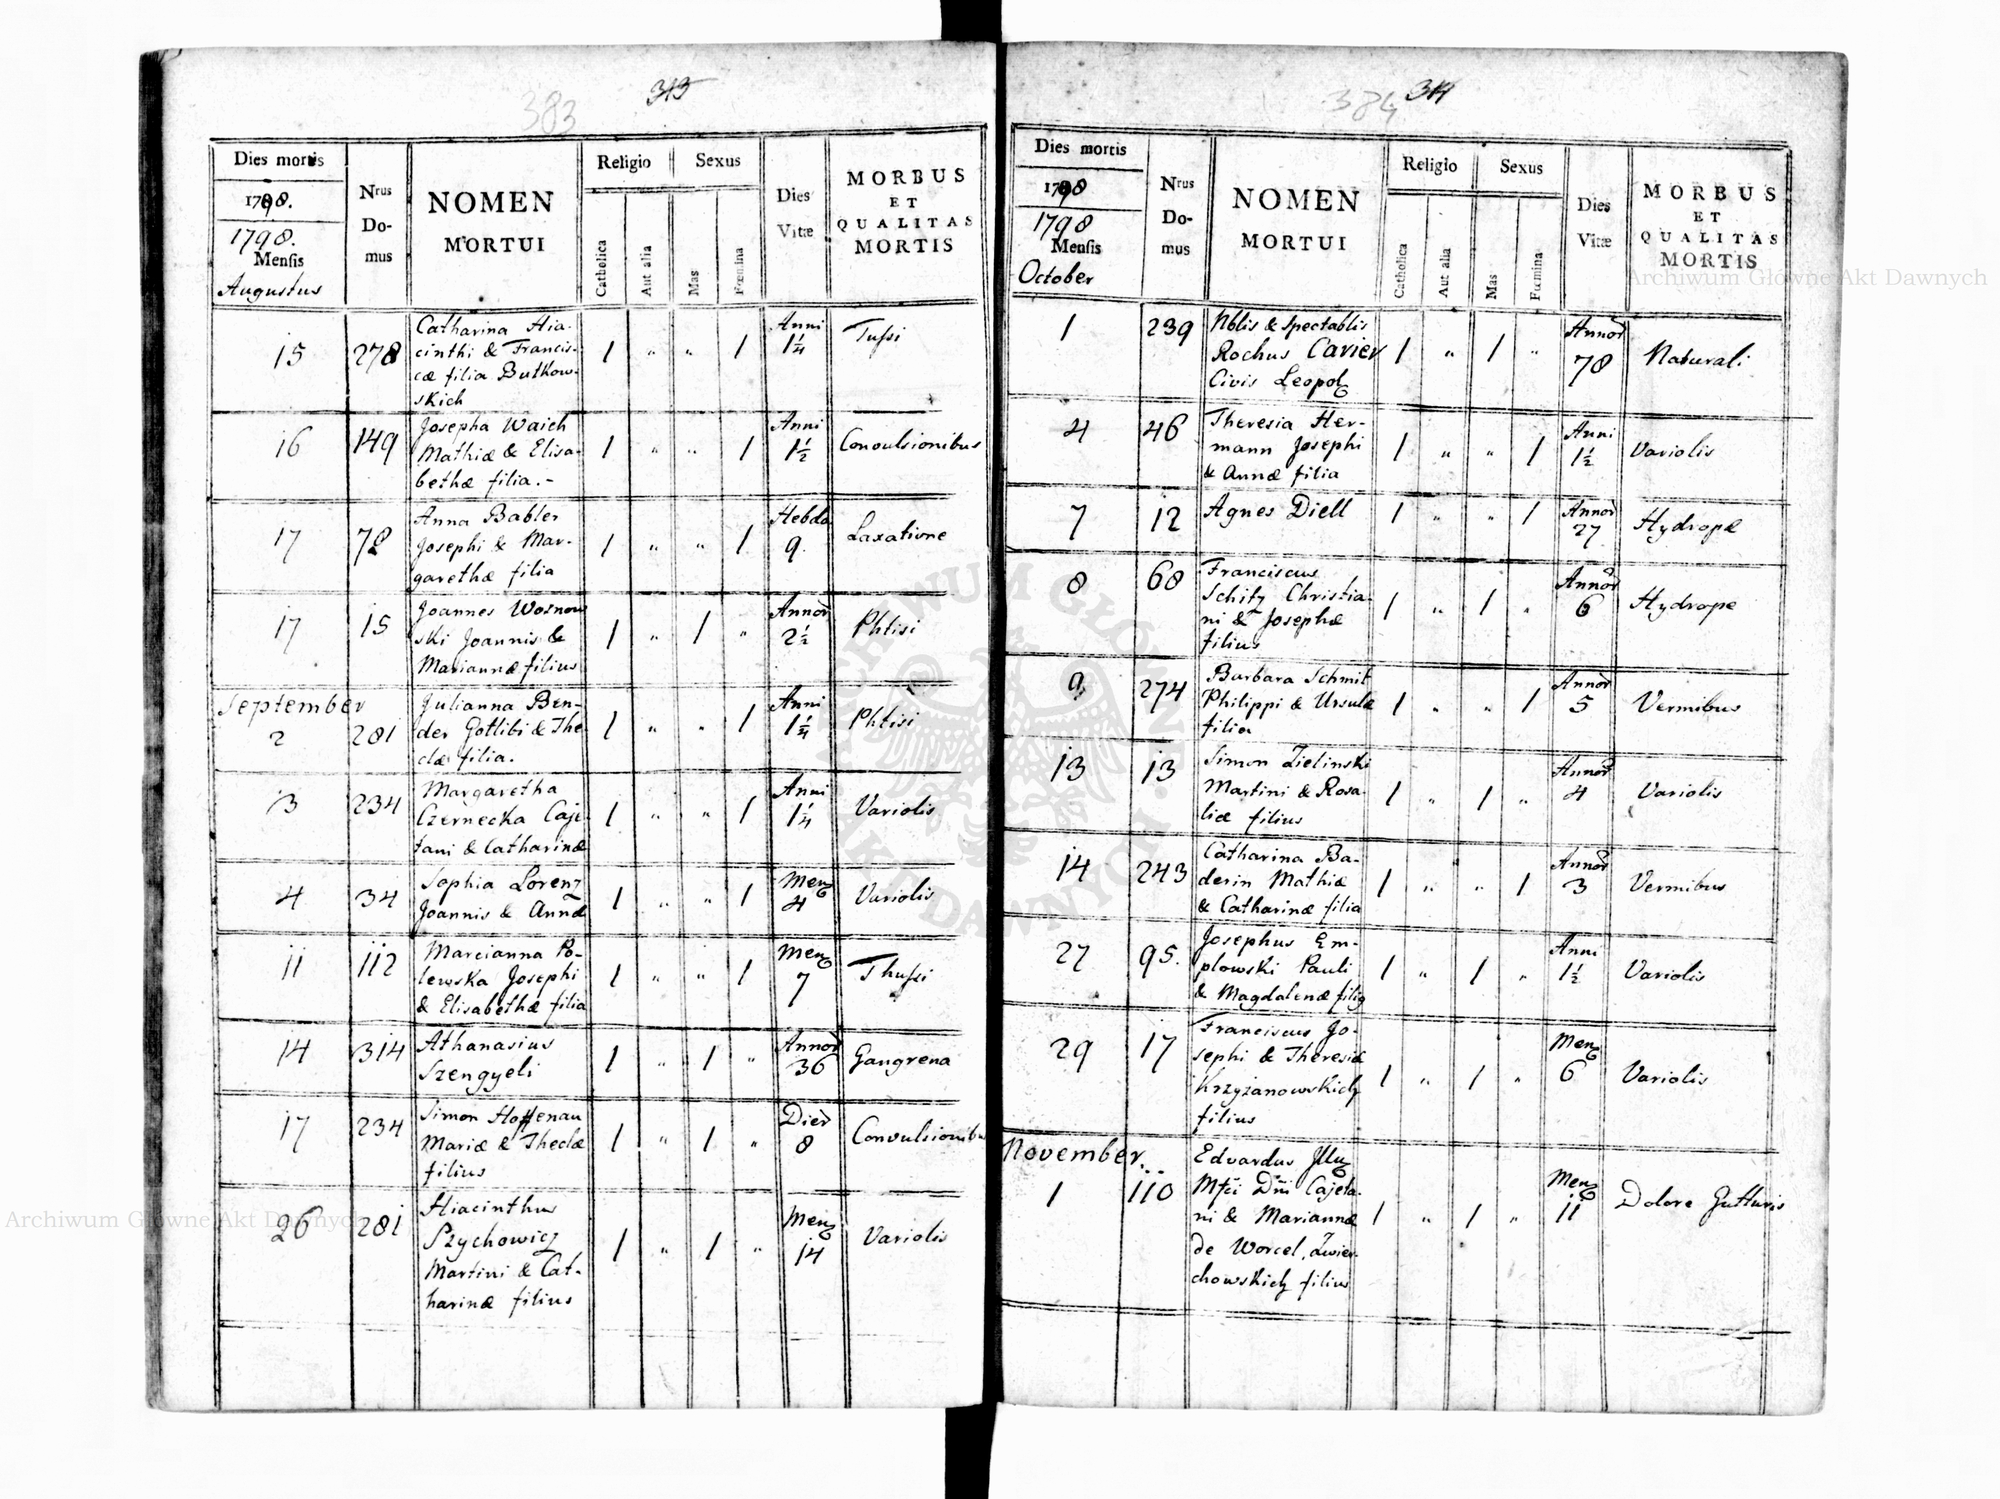 383 313
Dies mortis
1798.
1798.
Mensis
Augustus
Nrus
Do-
mus
NOMEN
MORTUI
Religio
Catholica
Aut alia
Sexus
Mas
Fœmina
Dies
Vitæ
MORBUS
ET
QUALITAS
MORTIS
15 278 Catharina Hia-
cinthi & Francis-
cæ filia Butkow-
skich
1 " " 1 Anni
1¼
Tussi
16 149 Josepha Waich
Mathiæ & Elisa-
bethæ filia.-
1 " " 1 Anni
1½
Convulsionibus
17 72 Anna Babler
Josephi & Mar-
garethæ filia
1 " " 1 Hebdo
9.
Laxatione
17 15 Joannes Wosnow
ski Joannis &
Mariannæ filius
1 " 1 " Annor
2½
Phtisi
September
2 281 Julianna Ben-
der Gotlibi & The
clæ filia.
1 " " 1 Anni
1¼
Phtisi
3 234 Margaretha
Czernecka Caje
tani & Catharinæ
1 " " 1 Anni
1¼
Variolis
4 34 Sophia Lorenz
Joannis & Annæ
1 " " 1 Men
4
Variolis
11 112 Marcianna Po-
lewska Josephi
& Elisabethæ filia
1 " " 1 Men
7
Thussi
14 314 Athanasius
Szengyeli
1 " 1 " Annor
36
Gangrena
17 234 Simon Hoffenau
Mariæ & Theclæ
filius
1 " 1 " Dier
8
Convulsionibus
26 281 Hiacinthus
Pzychowicz
Martini & Cat-
harinæ filius
1 " 1 " Men
14
Variolis
384 314
Dies mortis
1798
1798
Mensis
October
Nrus
Do-
mus
NOMEN
MORTUI
Religio
Catholica
Aut alia
Sexus
Mas
Fœmina
Dies
Vitæ
MORBUS
ET
QUALITAS
MORTIS
1 239 Nblis & Spectablis
Rochus Carier
Civis Leopol
1 " 1 " Annor
78
Naturali
4 46 Theresia Her-
mann Josephi
& Annæ filia
1 " " 1 Anni
1½
Variolis
7 12 Agnes Diell
1 " " 1 Annor
27
Hydrope
8 68 Franciscus
Schitz Christia-
ni & Josephæ
filius
1 " 1 " Annor
6
Hydrope
9 274 Barbara Schmit
Philippi & Ursulæ
filia
1 " " 1 Annor
5
Vermibus
13 13 Simon Zielinski
Martini & Rosa-
liæ filius
1 " 1 " Annor
4
Variolis
14 243 Catharina Ba-
derin Mathiæ
& Catharinæ filia
1 " " 1 Annor
3
Vermibus
27 95. Josephus Em-
plowski Pauli
& Magdalenæ filig
1 " 1 " Anni
1½
Variolis
29 17 Franciscus Jo-
sephi & Theresiæ
Krzyżanowskich
filius
1 " 1 " Men
6
Variolis
November.
1 110 Edvardus
Dni Cajeta-
ni & Mariannæ
de Worcel, Zwier-
chowskich filius
1 " 1 " Men
11
Dolore Gutturis
Archiwum Główne Akt Dawnych
Archiwum Główne Akt Dawnych
ARCHIWUM GŁÓWNE AKT DAWNYCH